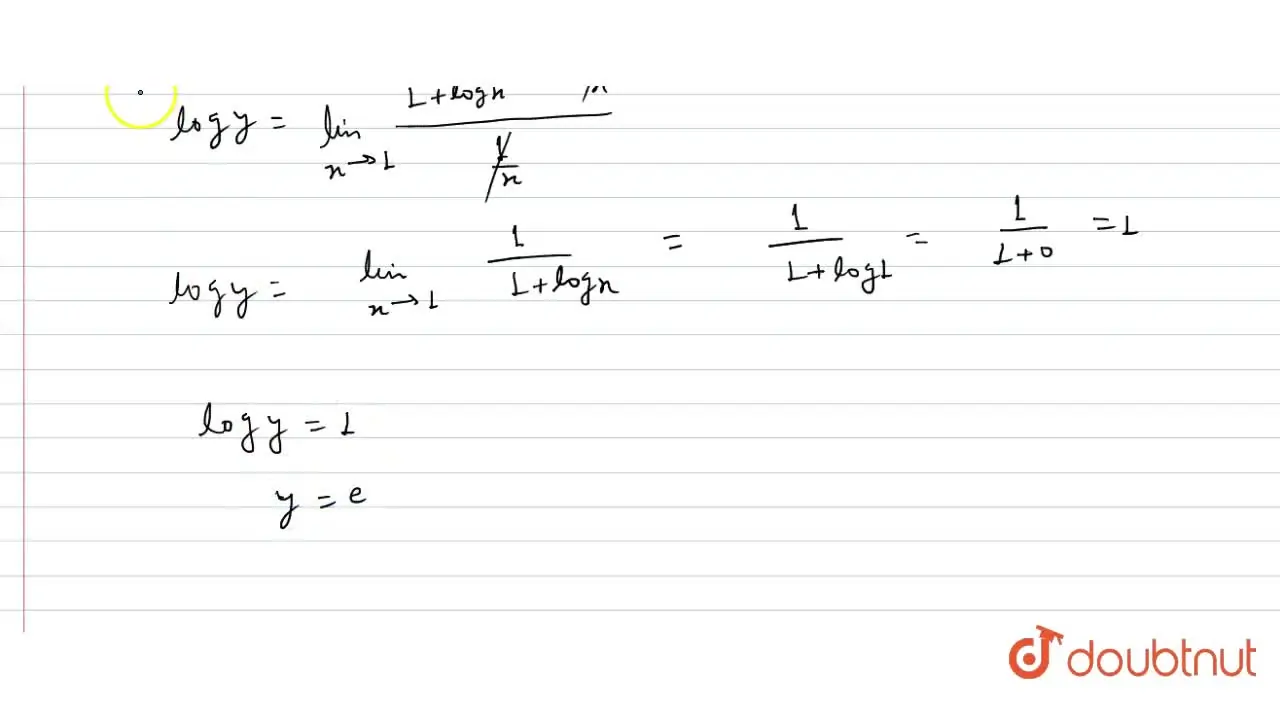 1+logx 1/x
log y = lim
x→1
1/x
log y = lim x→1 1/(1+logx) = 1/(1+log1) = 1/(1+0) = 1
log y = 1
y = e
doubtnut